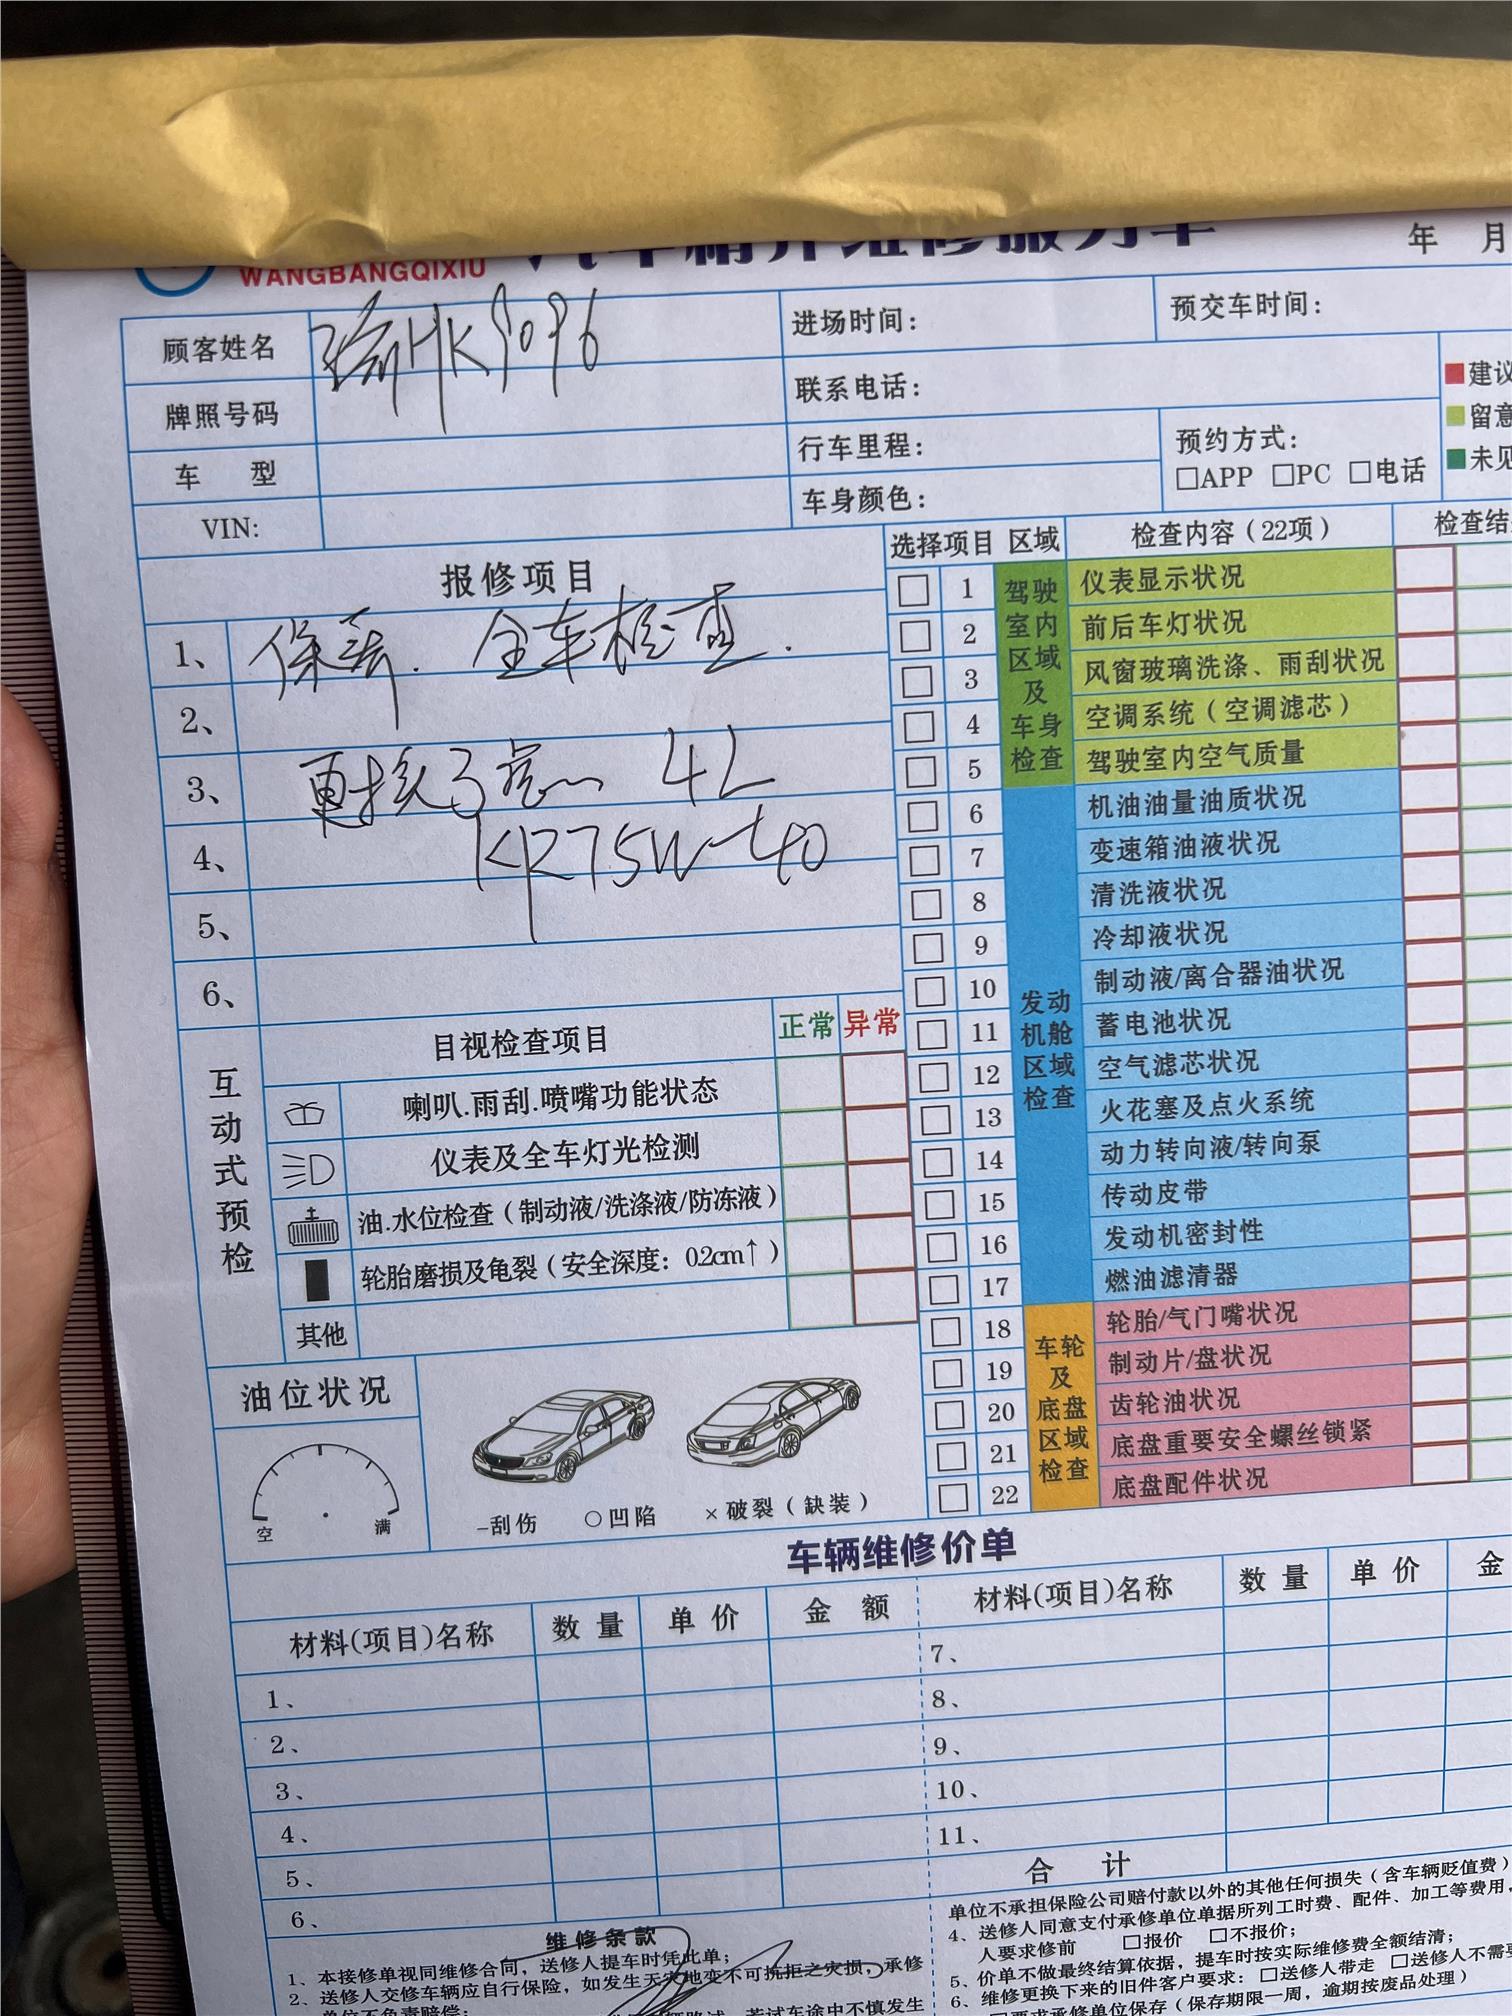 WANGBANGQIXIU 汽车精并维修服务车 年 月
顾客姓名 渝HK9096 进场时间： 预交车时间：
牌照号码 联系电话： 建议
车 型 行车里程： 预约方式： 留意
□APP □PC □电话 未见
VIN: 车身颜色：
报修项目 选择项目 区域 检查内容（22项） 检查结
1、 保养. 全车检查. □ 1 驾驶室内区域及车身检查 仪表显示状况
□ 2 前后车灯状况
2、 □ 3 风窗玻璃洗涤、雨刮状况
□ 4 空调系统（空调滤芯）
3、 更换了 4L □ 5 驾驶室内空气质量
□ 6 发动机舱区域检查 机油油量油质状况
4、 KR75W-40 □ 7 变速箱油液状况
5、 □ 8 清洗液状况
□ 9 冷却液状况
6、 □ 10 制动液/离合器油状况
互动式预检 目视检查项目 正常 异常 □ 11 蓄电池状况
喇叭.雨刮.喷嘴功能状态 □ 12 空气滤芯状况
□ 13 火花塞及点火系统
仪表及全车灯光检测 □ 14 动力转向液/转向泵
油.水位检查（制动液/洗涤液/防冻液） □ 15 传动皮带
□ 16 发动机密封性
轮胎磨损及龟裂（安全深度：0.2cm↑） □ 17 燃油滤清器
其他 □ 18 车轮及底盘区域检查 轮胎/气门嘴状况
油位状况 □ 19 制动片/盘状况
□ 20 齿轮油状况
□ 21 底盘重要安全螺丝锁紧
空 满 -刮伤 ○凹陷 ×破裂（缺装） □ 22 底盘配件状况
车辆维修价单
材料(项目)名称 数 量 单 价 金 额 材料(项目)名称 数 量 单 价 金
1、 7、
2、 8、
3、 9、
4、 10、
5、 11、
6、 合 计
维修条款
1、本接修单视同维修合同，送修人提车时凭此单；
2、送修人交修车辆应自行保险，如发生天灾地变不可抗拒之灾损，承修
单位不负责赔偿；
若试车途中不慎发生
单位不承担保险公司赔付款以外的其他任何损失（含车辆贬值费）
4、送修人同意支付承修单位单据所列工时费、配件、加工等费用，
人要求修前 □报价 □不报价；
5、价单不做最终结算依据，提车时按实际维修费全额结清；
6、维修更换下来的旧件客户要求：□送修人带走 □送修人不需要
□要求承修单位保存（保存期限一周，逾期按废品处理）